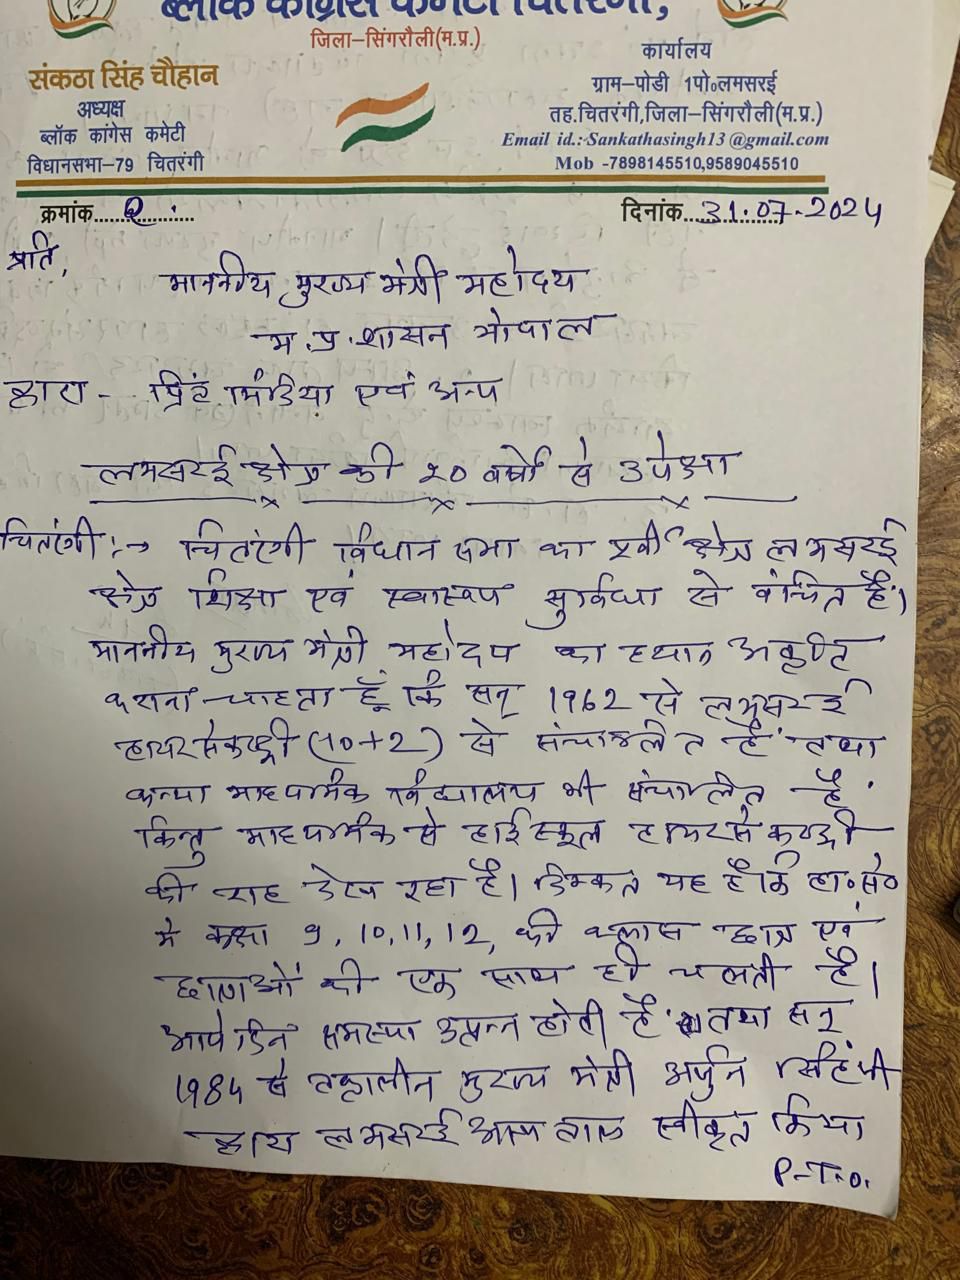 ब्लॉक कांग्रेस कमेटी चितरंगी,
जिला–सिंगरौली(म.प्र.)
संकठा सिंह चौहान
अध्यक्ष
ब्लॉक कांगेस कमेटी
विधानसभा–79 चितरंगी
कार्यालय
ग्राम–पोडी 1पो०लमसरई
तह.चितरंगी,जिला–सिंगरौली(म.प्र.)
Email id.:-Sankathasingh13@gmail.com
Mob -7898145510,9589045510
क्रमांक...............
दिनांक...31.07.2024
प्रति,
माननीय मुख्य मंत्री महोदय
म.प्र.शासन भोपाल
द्वारा - प्रिंट मिडिया एवं अन्य
लमसरई क्षेत्र की २० वर्षों से उपेक्षा
चितरंगी :→ चितरंगी विधान सभा का पूर्वी क्षेत्र लमसरई
क्षेत्र शिक्षा एवं स्वास्थ्य सुविधा से वंचित है।
माननीय मुख्य मंत्री महोदय का ध्यान
कराना चाहता हूँ कि सन् 1962 से लमसरई
हायर सेकण्ड्री (10+2) से संचालित है तथा
कन्या माध्यमिक विद्यालय भी संचालित है.
किन्तु माध्यमिक से हाई स्कूल हायर सेकण्ड्री
की राह देख रहा है। दिक्कत यह है कि हा०से०
मे कक्षा 9, 10, 11, 12, की क्लास छात्र एवं
छात्राओं की एक साथ ही चलती है।
आये दिन समस्या उत्पन्न होती है तथा सन्
1984 से तत्कालीन मुख्य मंत्री अर्जुन सिंह जी
द्वारा लमसरई स्वीकृत किया
P.T.O.